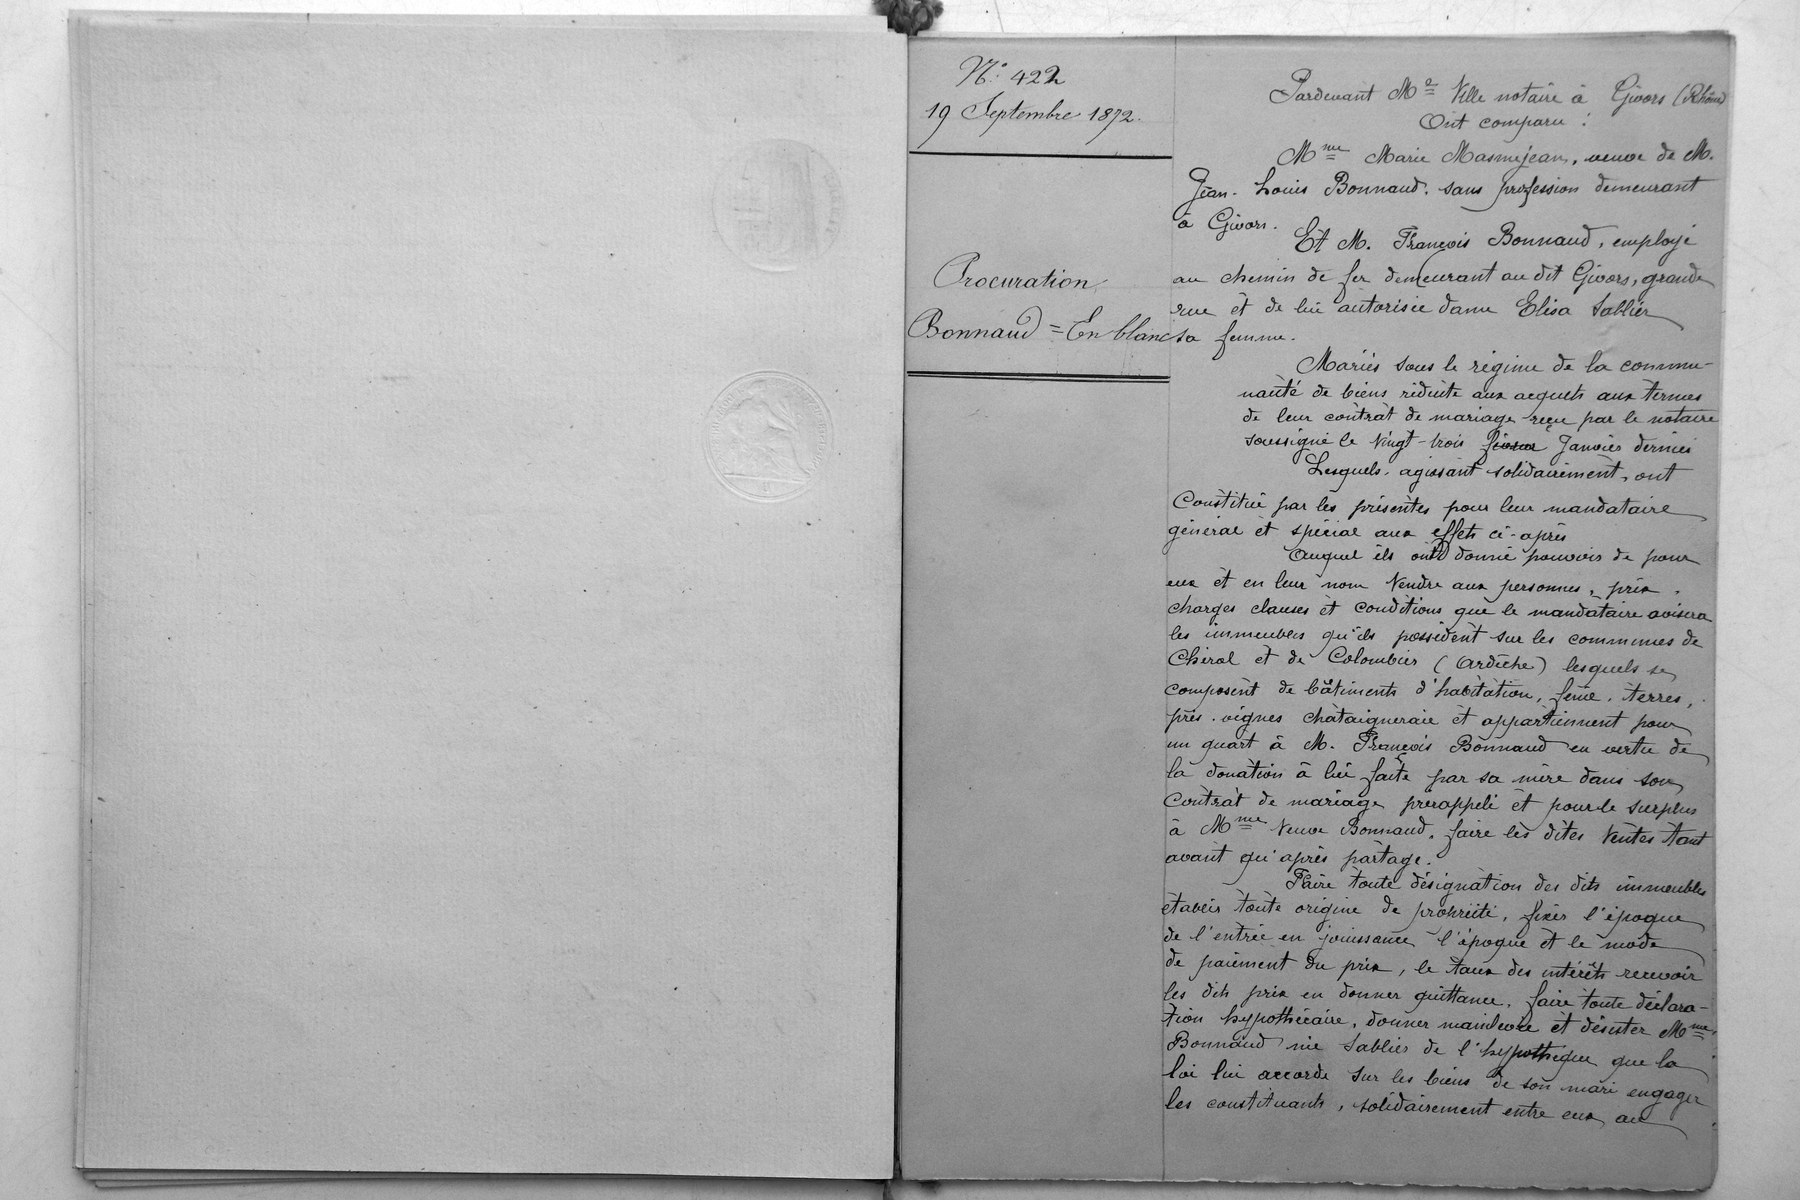 N° 422
19 Septembre 1872.
Procuration
Bonnaud = En blanc
Pardevant Me Ville notaire à Givors (Rhône)
Ont comparu :
Mme Marie Masmejean, veuve de M.
Jean-Louis Bonnaud. sans profession demeurant
à Givors.
Et M. François Bonnaud, employé
au chemin de fer demeurant au dit Givors, grande
rue et de lui autorisée dame Elisa Sablier
sa femme.
Mariés sous le régime de la commu-
nauté de biens réduite aux acquets aux termes
de leur contrat de mariage reçu par le notaire
soussigné le vingt-trois Janvier dernier
Lesquels, agissant solidairement, ont
Constitué par les présentes pour leur mandataire
général et spécial aux effets ci-après
Auquel ils ont donné pouvoir de pour
eux et en leur nom Vendre aux personnes, prix,
charges clauses et conditions que le mandataire avisera
les immeubles qu'ils possèdent sur les communes de
Chirol et de Colombier (Ardèche) lesquels se
composent de bâtiments d'habitation, terres,
près. vignes chataigneraie et appartiennent pour
un quart à M. François Bonnaud en vertu de
la donation à lui faite par sa mère dans son
Contrat de mariage prérappelé et pour le surplus
à Mme Veuve Bonnaud. faire les dites Ventes tant
avant qu'après partage.
Faire toute désignation des dits immeubles
établir toute origine de propriété, fixer l'époque
de l'entrée en jouissance l'époque et le mode
de paiement du prix, le taux des intérêts recevoir
les dits prix en donner quittance. faire toute déclara-
tion hypothécaire, donner mainlevée et désister Mme
Bonnaud née Sablier de l'hypothèque que la
loi lui accorde sur les biens de son mari engager
les constituants, solidairement entre eux au